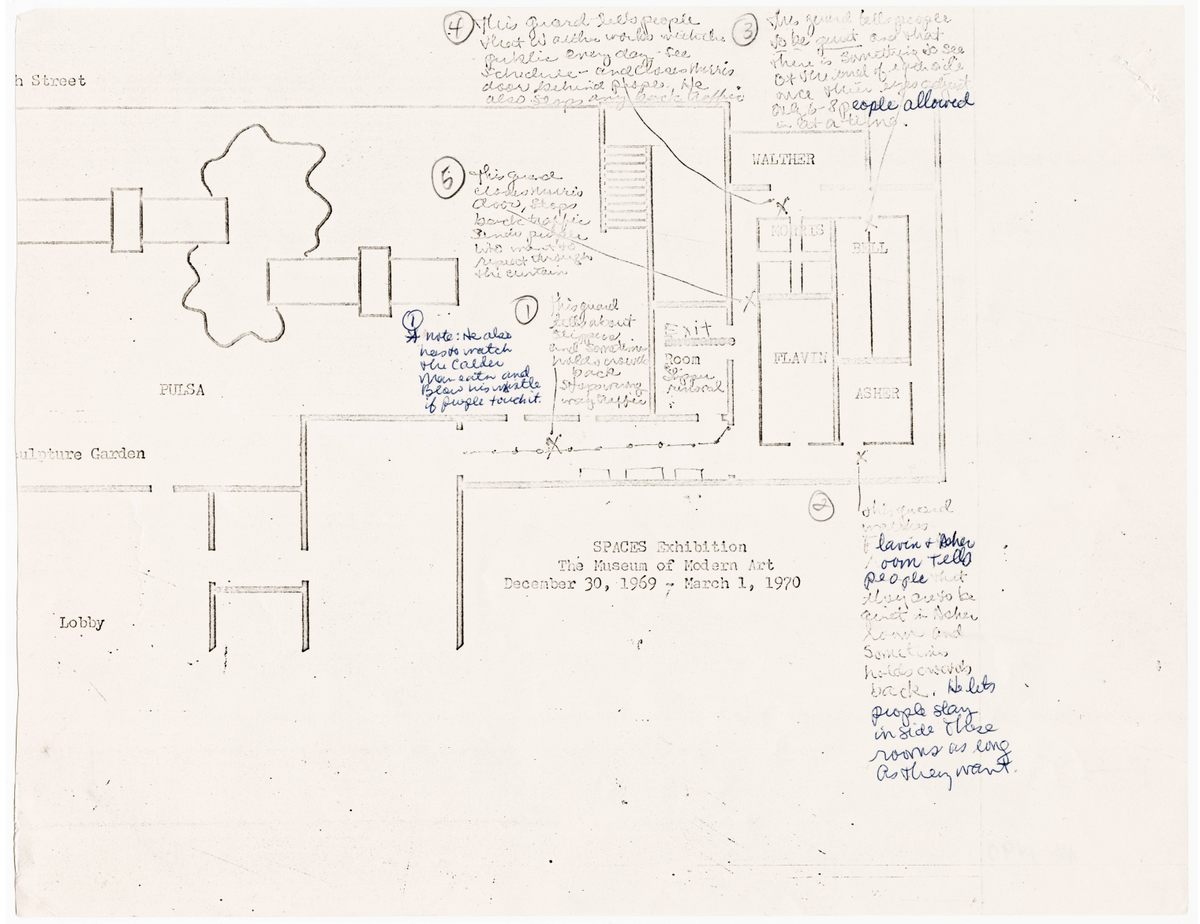 h Street
④ This guard tells people
that Walther works with the
public every day - see
Schedule - and closes Morris
door behind people. He
also stops any back traffic
③ This guard tells people
to be quiet and that
there is something to see
at the end of
once their eyes adjust
only 6-8 people allowed
in at a time.
WALTHER
⑤ This guard
closes Morris
door, stops
back traffic
people
who want to
through
the curtain
MORRIS
BELL
① This guard
tells about
and sometimes
holds crowd
back
stops wrong
way traffic
①
note: He also
has to watch
the Calder
Man eater and
Blow his whistle
if people touch it.
Exit
Entrance
Room
removal
FLAVIN
ASHER
PULSA
ulpture Garden
② This guard
watches
Flavin + Asher
room Tells
people that
they are to be
quiet in Asher
room and
Sometimes
holds crowds
back. He lets
people stay
inside These
rooms as long
as they want.
SPACES Exhibition
The Museum of Modern Art
December 30, 1969 - March 1, 1970
Lobby